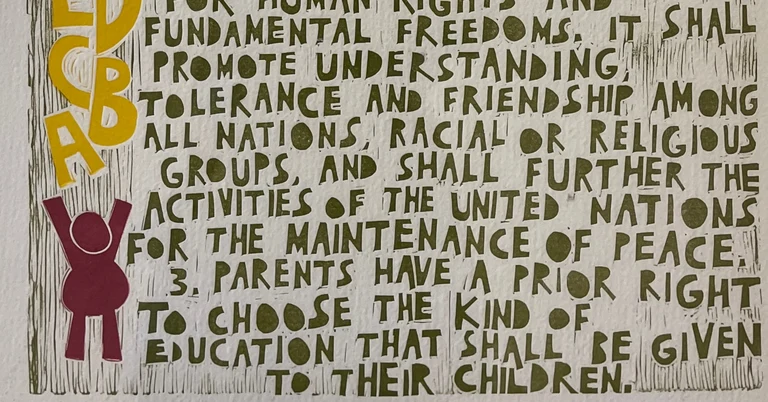 E D
C
B
A
FOR HUMAN RIGHTS AND
FUNDAMENTAL FREEDOMS. IT SHALL
PROMOTE UNDERSTANDING,
TOLERANCE AND FRIENDSHIP AMONG
ALL NATIONS, RACIAL OR RELIGIOUS
GROUPS, AND SHALL FURTHER THE
ACTIVITIES OF THE UNITED NATIONS
FOR THE MAINTENANCE OF PEACE.
3. PARENTS HAVE A PRIOR RIGHT
TO CHOOSE THE KIND OF
EDUCATION THAT SHALL BE GIVEN
TO THEIR CHILDREN.